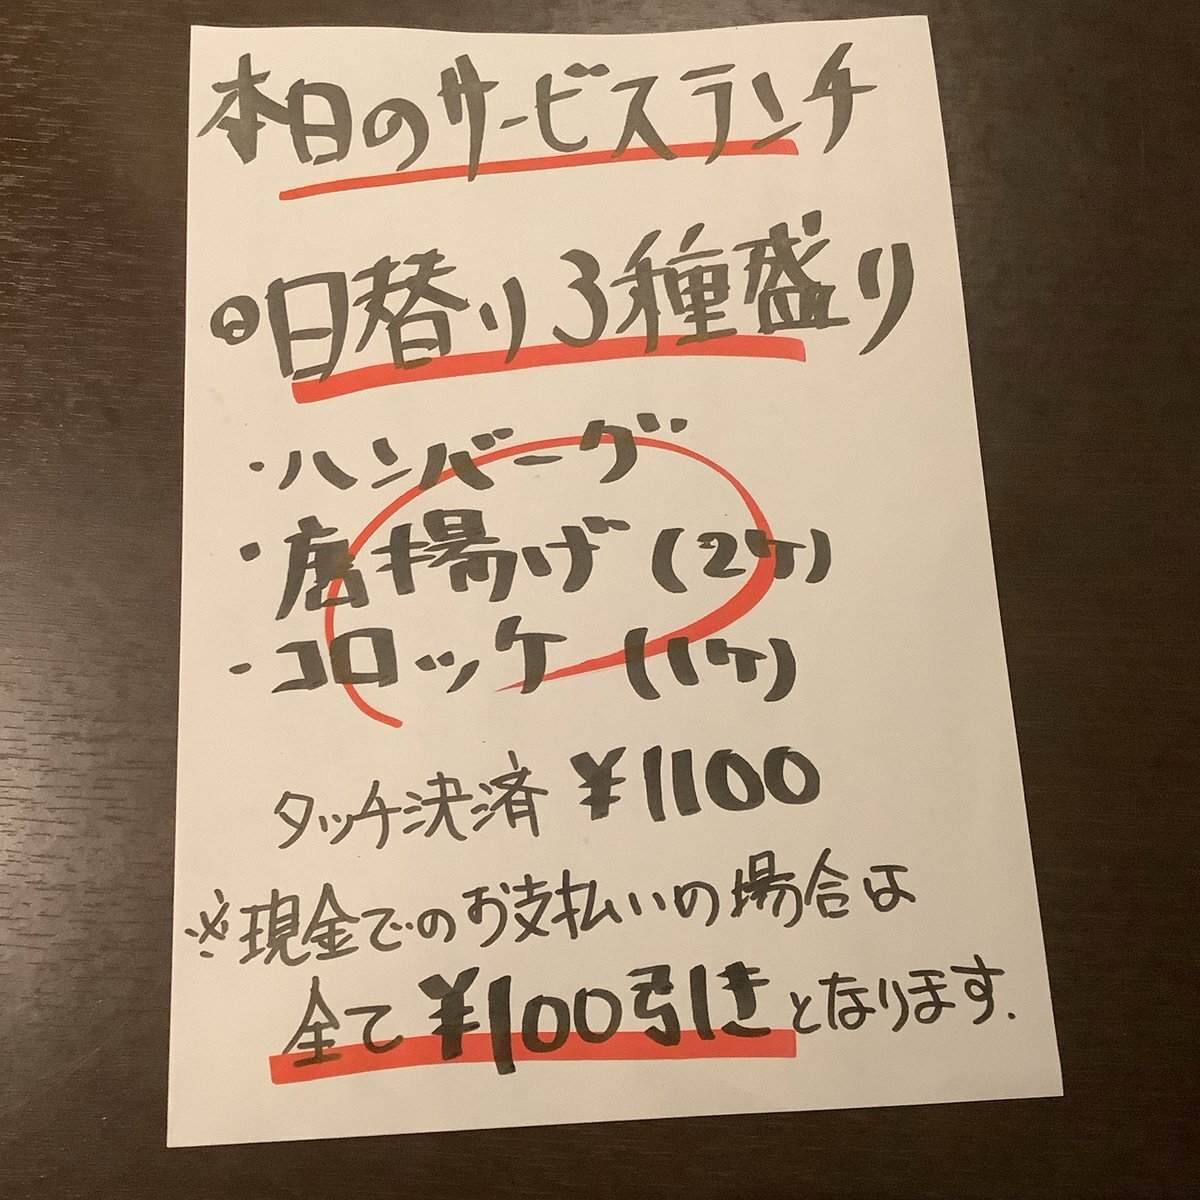 本日のサービスランチ
◎日替り3種盛り
・ハンバーグ
・唐揚げ(2ヶ)
・コロッケ(1ヶ)
タッチ決済 ¥1100
※現金でのお支払いの場合は
全て¥100引きとなります.